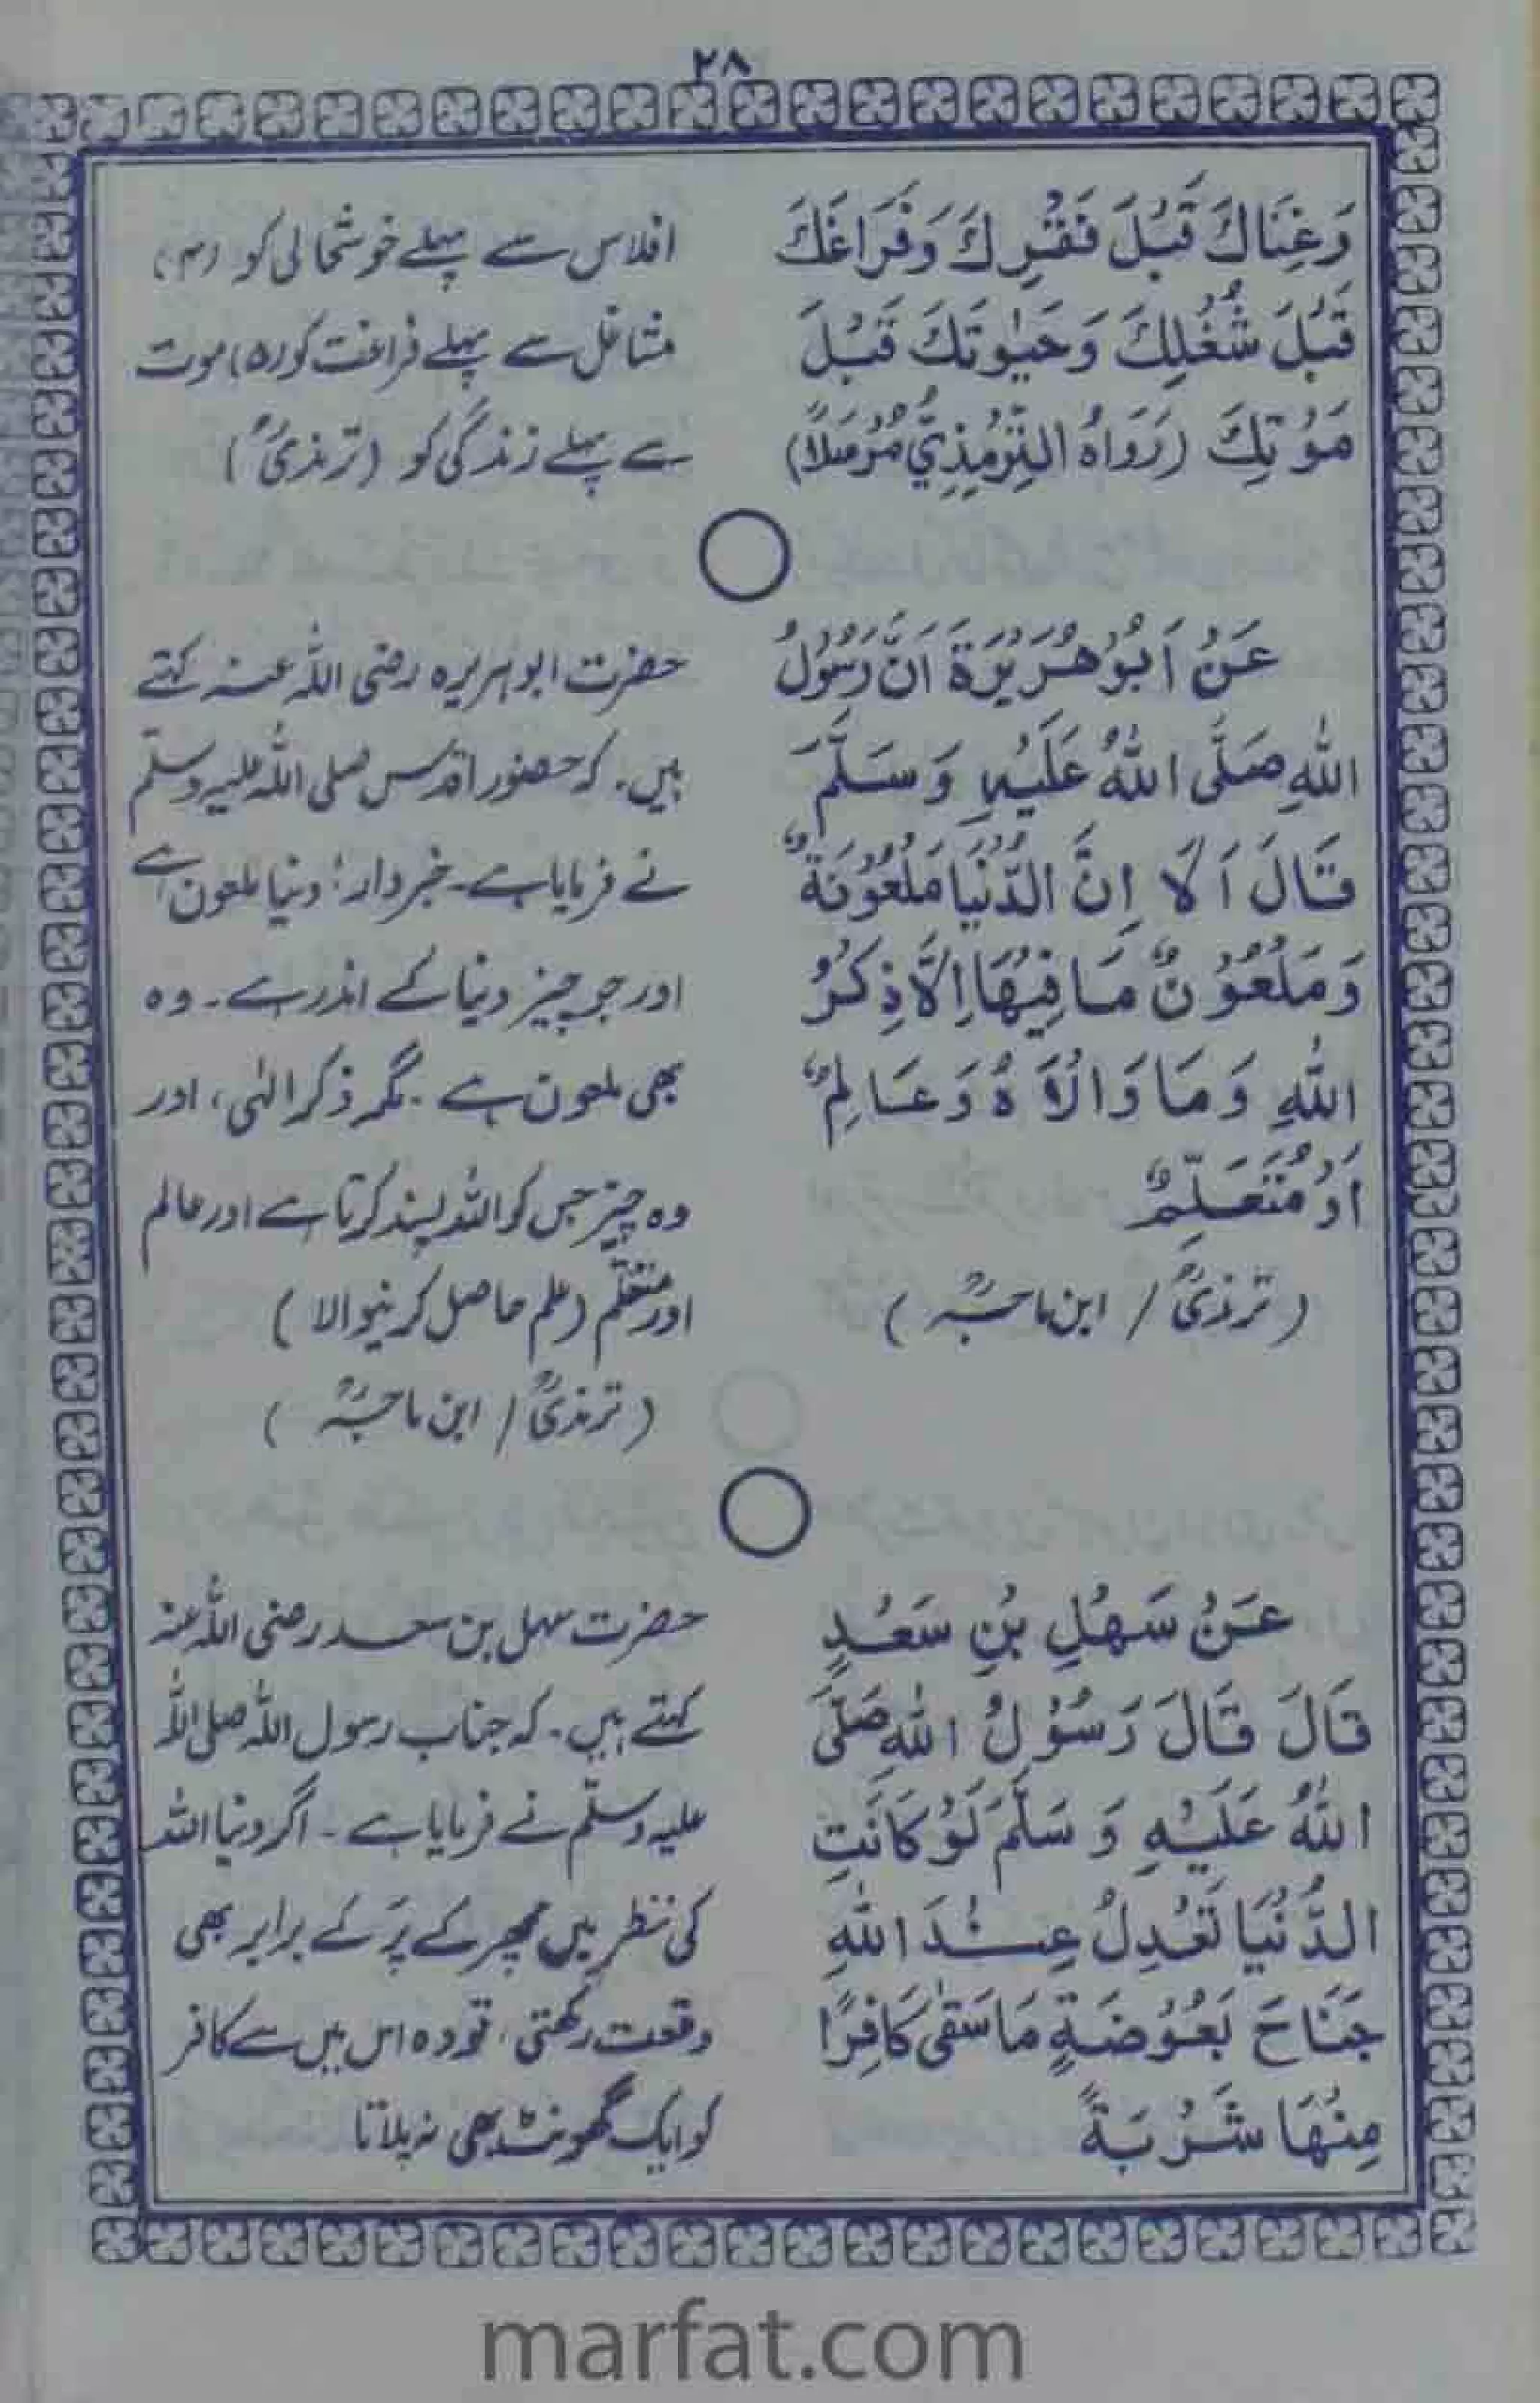 ۲۸
وَغِنَاكَ قَبْلَ فَقْرِكَ وَفَرَاغَكَ
قَبْلَ شُغْلِكَ وَحَيٰوتَكَ قَبْلَ
مَوْتِكَ (رَوَاهُ التِّرْمِذِيُّ مُرْسَلًا)
افلاس سے پہلے خوشحالی کو (۴)
مشاغل سے پہلے فراغت کو (۵) موت
سے پہلے زندگی کو (ترمذیؒ)
عَنْ اَبُوْهُرَيْرَةَ اَنَّ رَسُوْلُ
اللهِ صَلَّى اللهُ عَلَيْهِ وَسَلَّمَ
قَالَ اَلَا اِنَّ الدُّنْيَا مَلْعُوْنَةٌ
وَمَلْعُوْنٌ مَا فِيْهَا اِلَّا ذِكْرُ
اللهِ وَمَا وَالَاهُ وَعَالِمٌ
اَوْ مُتَعَلِّمٌ
(ترمذیؒ / ابن ماجہؒ)
حضرت ابوہریرہ رضی اللہ عنہ کہتے
ہیں۔ کہ حضور اقدس صلی اللہ علیہ وسلّم
نے فرمایا ہے۔ خبردار! دنیا ملعون ہے
اور جو چیز دنیا کے اندر ہے۔ وہ
بھی ملعون ہے۔ مگر ذکر الٰہی، اور
وہ چیز جس کو اللہ پسند کرتا ہے اور عالم
اور متعلّم (علم حاصل کرنیوالا)
(ترمذیؒ / ابن ماجہؒ)
عَنْ سَهْلِ بْنِ سَعْدٍ
قَالَ قَالَ رَسُوْلُ اللهِ صَلَّى
اللهُ عَلَيْهِ وَسَلَّمَ لَوْ كَانَتِ
الدُّنْيَا تَعْدِلُ عِنْدَ اللهِ
جَنَاحَ بَعُوْضَةٍ مَا سَقٰى كَافِرًا
مِنْهَا شَرْبَةً
حضرت سہل بن سعد رضی اللہ عنہ
کہتے ہیں۔ کہ جناب رسول اللہ صلی اللہ
علیہ وسلّم نے فرمایا ہے۔ اگر دنیا اللہ
کی نظر میں مچھر کے پَر کے برابر بھی
وقعت رکھتی، تو وہ اس میں سے کافر
کو ایک گھونٹ بھی نہ پلاتا
marfat.com